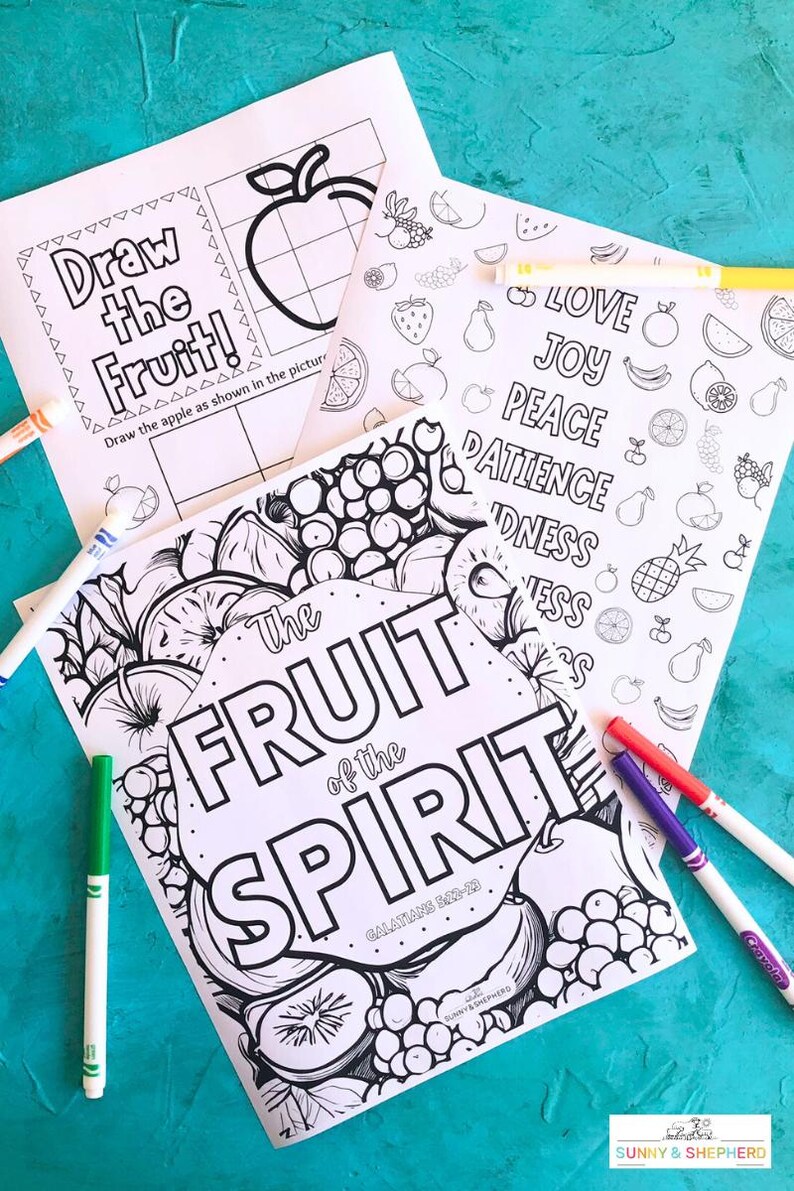 Draw
the
Fruit!
Draw the apple as shown in the picture
LOVE
JOY
PEACE
PATIENCE
NDNESS
NESS
SS
The
FRUIT
of the
SPIRIT
GALATIANS 5:22-23
SUNNY & SHEPHERD
Crayola
SUNNY & SHEPHERD